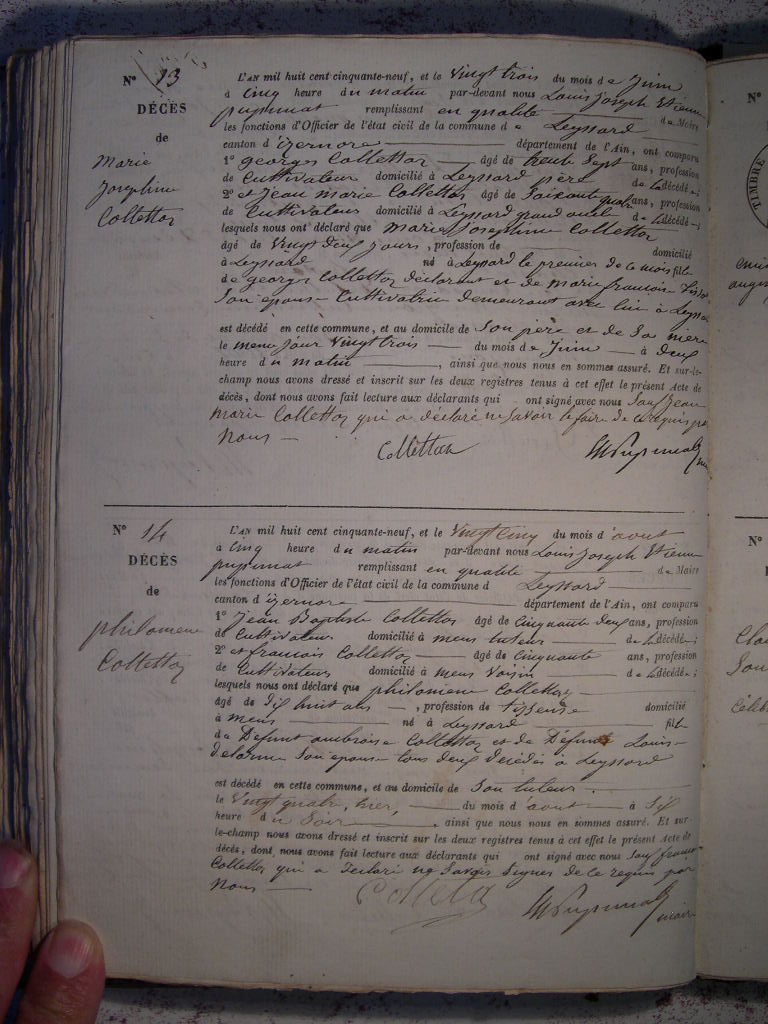 N° 13
DÉCÈS
de
Marie
Josephine
Collettaz
L'AN mil huit cent cinquante-neuf, et le vingt trois du mois de Juin
à cinq heure du matin par-devant nous Louis Joseph Etienne
pupunat remplissant en qualité de Maire
les fonctions d'Officier de l'état civil de la commune de Leyssard
canton d'izernore département de l'Ain, ont comparu
1° georges Collettaz âgé de trente sept ans, profession
de Cultivateur domicilié à Leyssard père de la décédée;
2° et Jean marie Collettaz âgé de Soixante quatre ans, profession
de Cultivateur domicilié à Leyssard grand oncle de la décédée;
lesquels nous ont déclaré que marie Josephine Collettaz
âgé de vingt deux jours, profession de domicilié
à Leyssard né à Leyssard le premier de ce mois fille
de georges Collettaz déclarant et de marie francoise
Son épouse Cultivatrice demeurant avec lui à Leyssard
est décédé en cette commune, et au domicile de Son père et de Sa mère
le meme jour vingt trois du mois de Juin à deux
heure du matin, ainsi que nous nous en sommes assuré. Et sur-le-
champ nous avons dressé et inscrit sur les deux registres tenus à cet effet le présent Acte de
décès, dont nous avons fait lecture aux déclarants qui ont signé avec nous Sauf Jean
marie Collettaz qui a déclaré ne Savoir le faire de ce requis par
Nous
Collettaz
pupunat maire
N° 14
DÉCÈS
de
philomene
Collettaz
L'AN mil huit cent cinquante-neuf, et le vingt cinq du mois d'aout
à cinq heure du matin par-devant nous Louis Joseph Etienne
pupunat remplissant en qualité de Maire
les fonctions d'Officier de l'état civil de la commune d Leyssard
canton d'izernore département de l'Ain, ont comparu
1° Jean Baptiste Collettaz âgé de cinquante deux ans, profession
de Cultivateur domicilié à mens tuteur de la décédée;
2° et francois Collettaz âgé de cinquante ans, profession
de Cultivateur domicilié à mens voisin de la décédée;
lesquels nous ont déclaré que philomene Collettaz
âgé de dix huit ans, profession de tisseuse domicilié
à mens né à Leyssard fille
de Défunt ambroise Collettaz et de Défunte Louise
delorme Son épouse tous deux décédés à Leyssard
est décédé en cette commune, et au domicile de Son tuteur.
le vingt quatre, hier, du mois d'aout à dix
heure du Soir, ainsi que nous nous en sommes assuré. Et sur-
le-champ nous avons dressé et inscrit sur les deux registres tenus à cet effet le présent Acte de
décès, dont nous avons fait lecture aux déclarants qui ont signé avec nous Sauf francois
Collettaz qui a declaré ne Savoir Signer de ce requis par
Nous
Colleta
pupunat
maire
N°
TIMBRE
N°